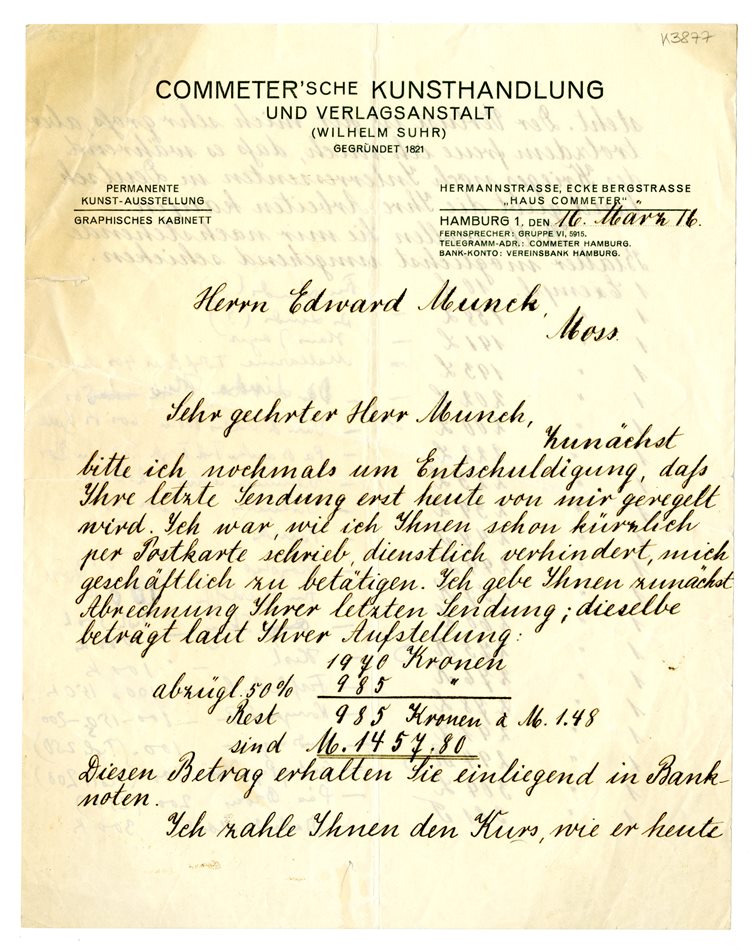 K3877
COMMETER'SCHE KUNSTHANDLUNG
UND VERLAGSANSTALT
(WILHELM SUHR)
GEGRÜNDET 1821
PERMANENTE
KUNST-AUSSTELLUNG
GRAPHISCHES KABINETT
HERMANNSTRASSE, ECKE BERGSTRASSE
„HAUS COMMETER"
HAMBURG 1, DEN 16. März 16.
FERNSPRECHER: GRUPPE VI, 5915.
TELEGRAMM-ADR.: COMMETER HAMBURG.
BANK-KONTO: VEREINSBANK HAMBURG.
Herrn Edward Munch,
Moss.
Sehr geehrter Herr Munch,
Zunächst
bitte ich nochmals um Entschuldigung, daß
Ihre letzte Sendung erst heute von mir geregelt
wird. Ich war, wie ich Ihnen schon kürzlich
per Postkarte schrieb, dienstlich verhindert, mich
geschäftlich zu betätigen. Ich gebe Ihnen zunächst
Abrechnung Ihrer letzten Sendung; dieselbe
beträgt laut Ihrer Aufstellung:
1970 Kronen
abzügl. 50% 985 "
Rest 985 Kronen à M. 1.48
sind M. 1457.80
Diesen Betrag erhalten Sie einliegend in Bank-
noten.
Ich zahle Ihnen den Kurs, wie er heute